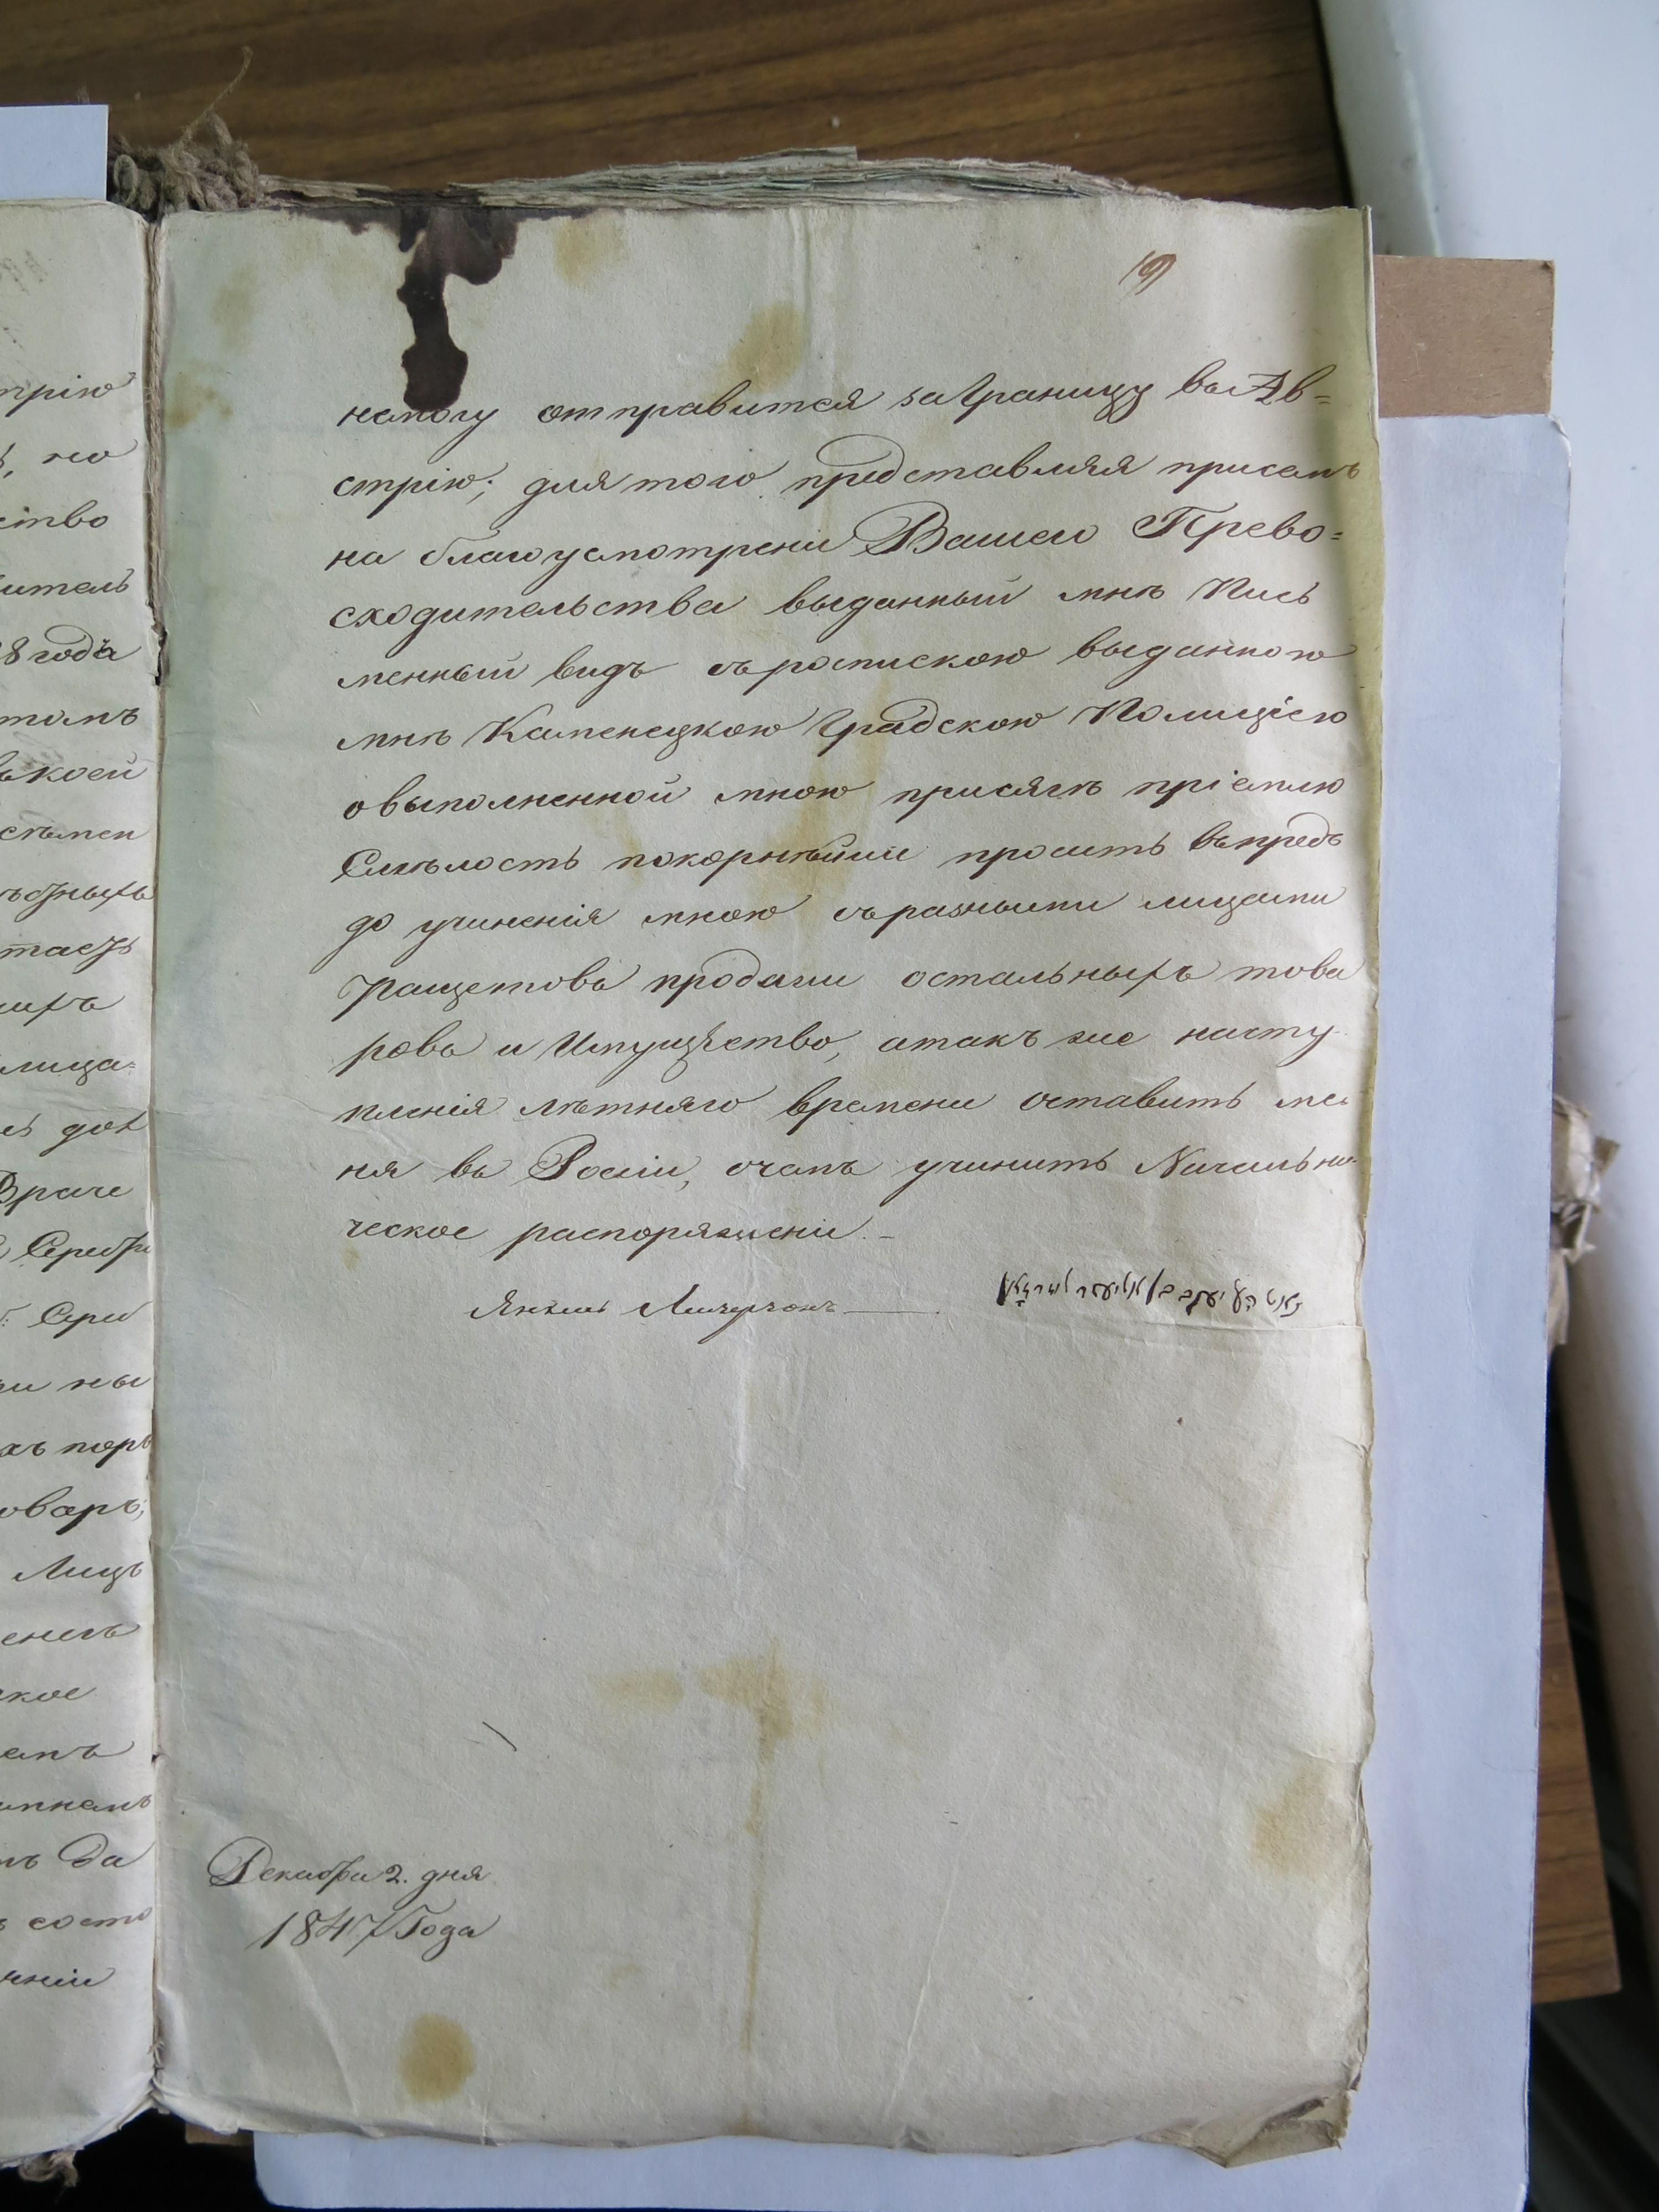 трію
что
ство
итель
8 года
какой
лица=
дол
Врачь
Сереб
Сереб
товаръ,
Лицъ
ское
да
состо
19
немогу отправится заграницу въ Ав=
стрію; для того представляя присемъ
на благоусмотреніи Вашего Прево=
сходительства выданный мнѣ Пись
менный видъ съ роспискою выданною
мнѣ Каменецкою Градскою Полиціею
о выполненной мною присягѣ пріемлю
Смѣлость покорнѣйши просить въпредь
до учиненія мною съ разными лицами
ращетовъ продажи остальныхъ това
ровъ и Имущество, а такъ же насту-
пленія лѣтняго времени оставить ме
ня въ Россіи, о чемъ учинить Начальни-
ческое распоряженіи. –
Янкель
Декабря 2. дня
1847 Года